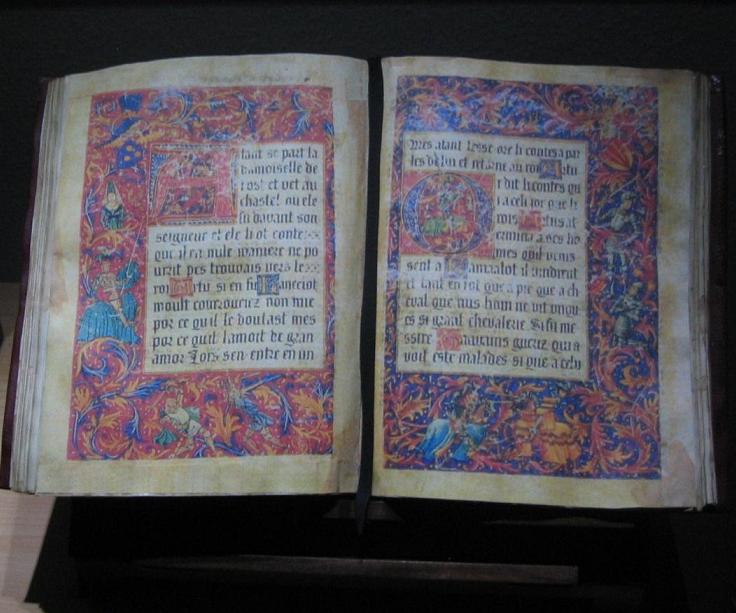 Atant se part la
damoiselle de
rost et vet au
chastel ou ele
fu davant son
seigneur et ele li ot conte
que il en nule maniere ne po
urrit pes trouvais vers le
roi Artu si en fu Lancelot
moult courouciez non mie
por ce qu il le doutast mes
por ce quil lamoit de gran
amor Lors sen entre en un
Apres atant lesse ore li contes a par
les de lui et retorne au roi Artu
r dit li contes qu
i a celi jor que li
rois Artus at
ermina a ses ho
mes quil venis
sent a Lamaalot il vindrent
et tant en i ot que a pie que a ch
eval que nus hom ne vit onqu
es si grant chevalerie Si fu me
ssire Gauvains gueriz qui a
voit este malades si que a celu